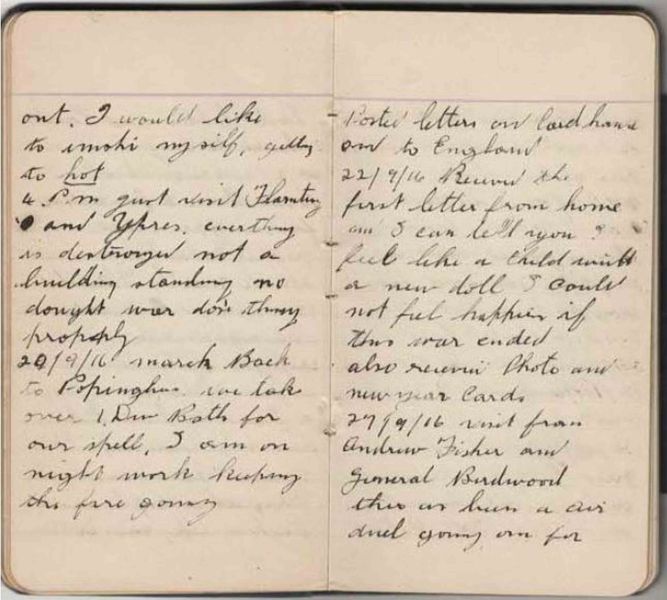 out. I would like
to smoke myself, getting
to hot
4. P.m just visit Flamting
and Ypres. everthing
is desteroyed not a
building standing no
dought war dose things
properly
20/9/16 march Back
to Popinghu we take
over 1 Div Baths for
our spell, I am on
night work keeping
the fire going
Posted letters and Card home
and to England
22/9/16 Received the
first letter from home
and I can tell you I
feel like a child with
a new doll I could
not feel happier if
this war ended
also received Photo and
new year Cards
27/9/16 visit from
Andrew Fisher and
General Birdwood
there as been a air
duel going on for